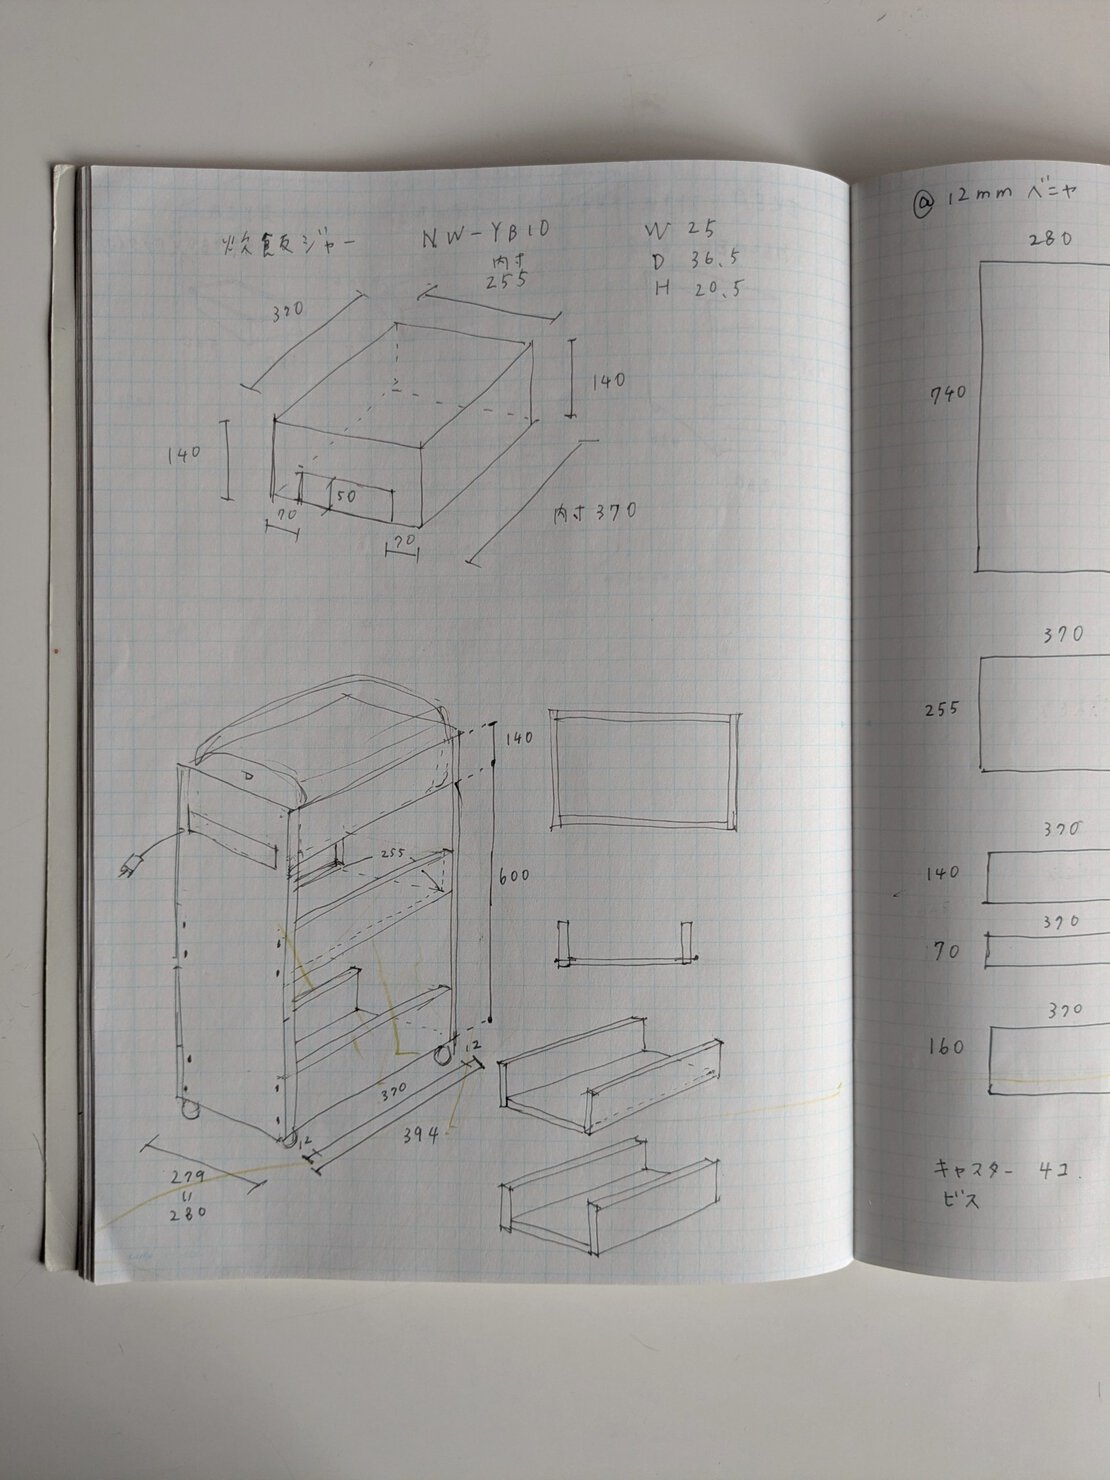 炊飯ジャー
NW-YB10
W 25
D 36.5
H 20.5
内寸
255
370
140
140
50
70
70
内寸370
140
255
600
12
370
12
394
279
280
@ 12mm ベニヤ
280
740
370
255
370
140
370
70
370
160
キャスター 4コ.
ビス